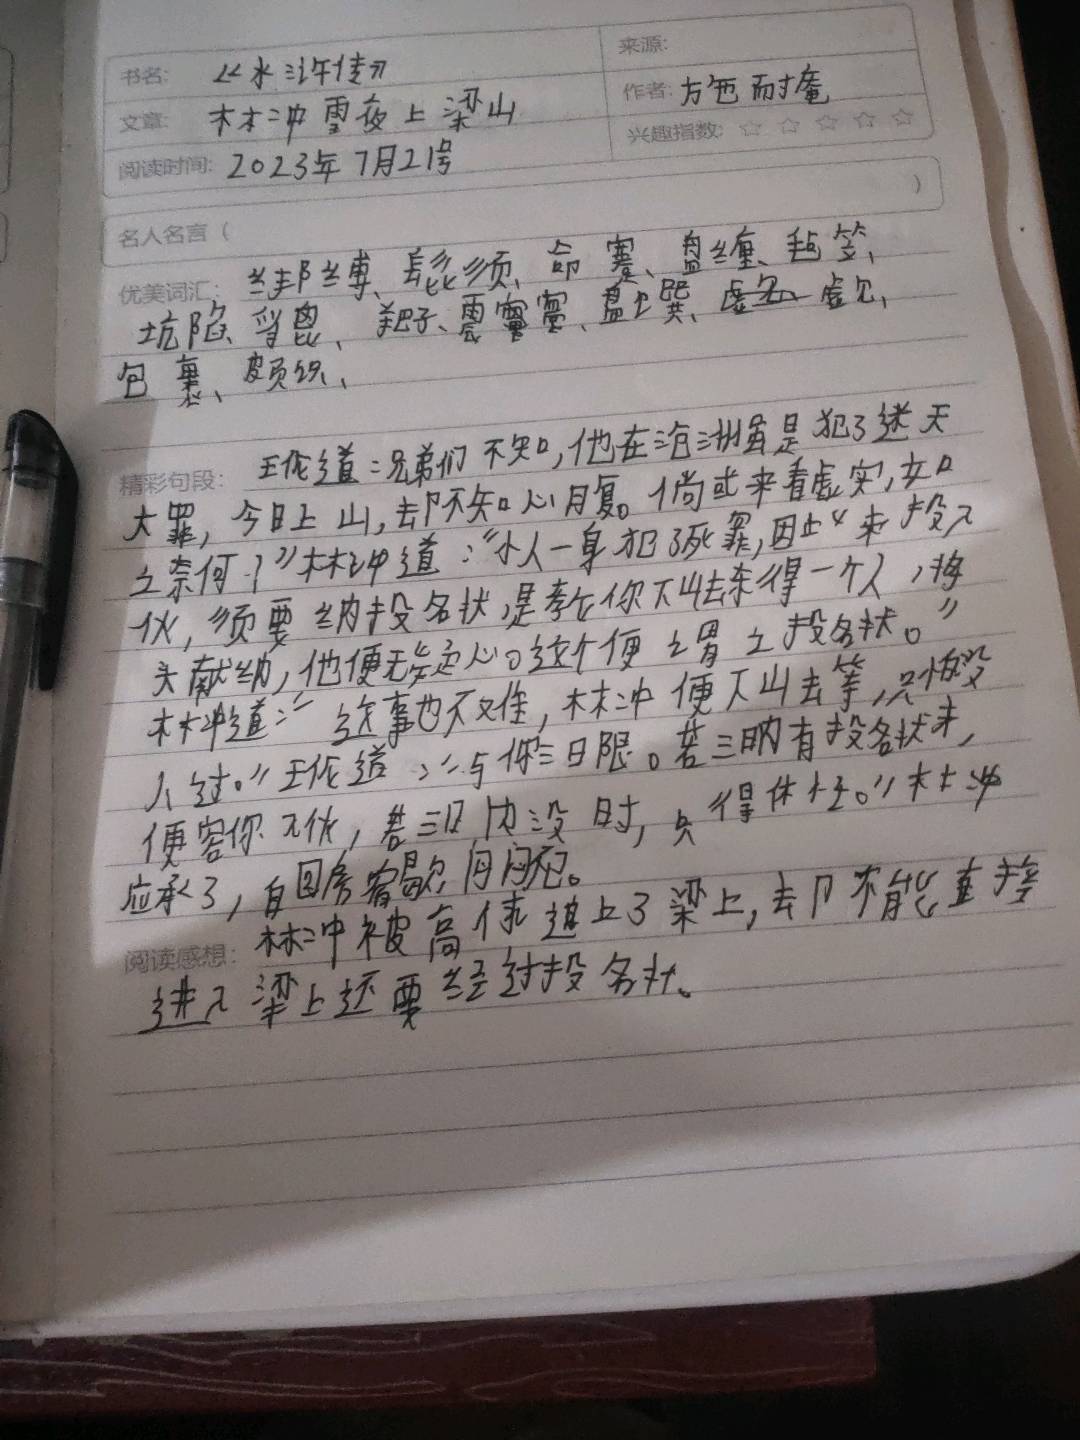 书名: 《水浒传》
来源:
文章: 林冲雪夜上梁山
作者: 施耐庵
阅读时间: 2023年7月21号
兴趣指数: ☆ ☆ ☆ ☆ ☆
名人名言 ( )
优美词汇: 绑缚、髭须、命蹇、盘缠、毡笠、
坑陷、
包裹、
精彩句段: 王伦道:兄弟们不知,他在沧洲虽是犯了迷天
大罪,今日上山,却不知心腹。倘或来看虚实,如
之奈何?”林冲道:“小人一身犯了死罪,因此来投入
伙,须要纳投名状,是教你下山去杀得一个人,将
头献纳,他便无疑心。这个便谓之投名状。”
林冲道:“这事也不难,林冲便下山去等,只怕没
人过。”王伦道:“与你三日限。若三日内有投名状来,
便容你入伙,若三日内没时,只得休怪。”林冲
应承了,自回房宿歇,闷闷不已。
阅读感想: 林冲被高俅逼上了梁上,却不能直接
进入梁上还要经过投名状。